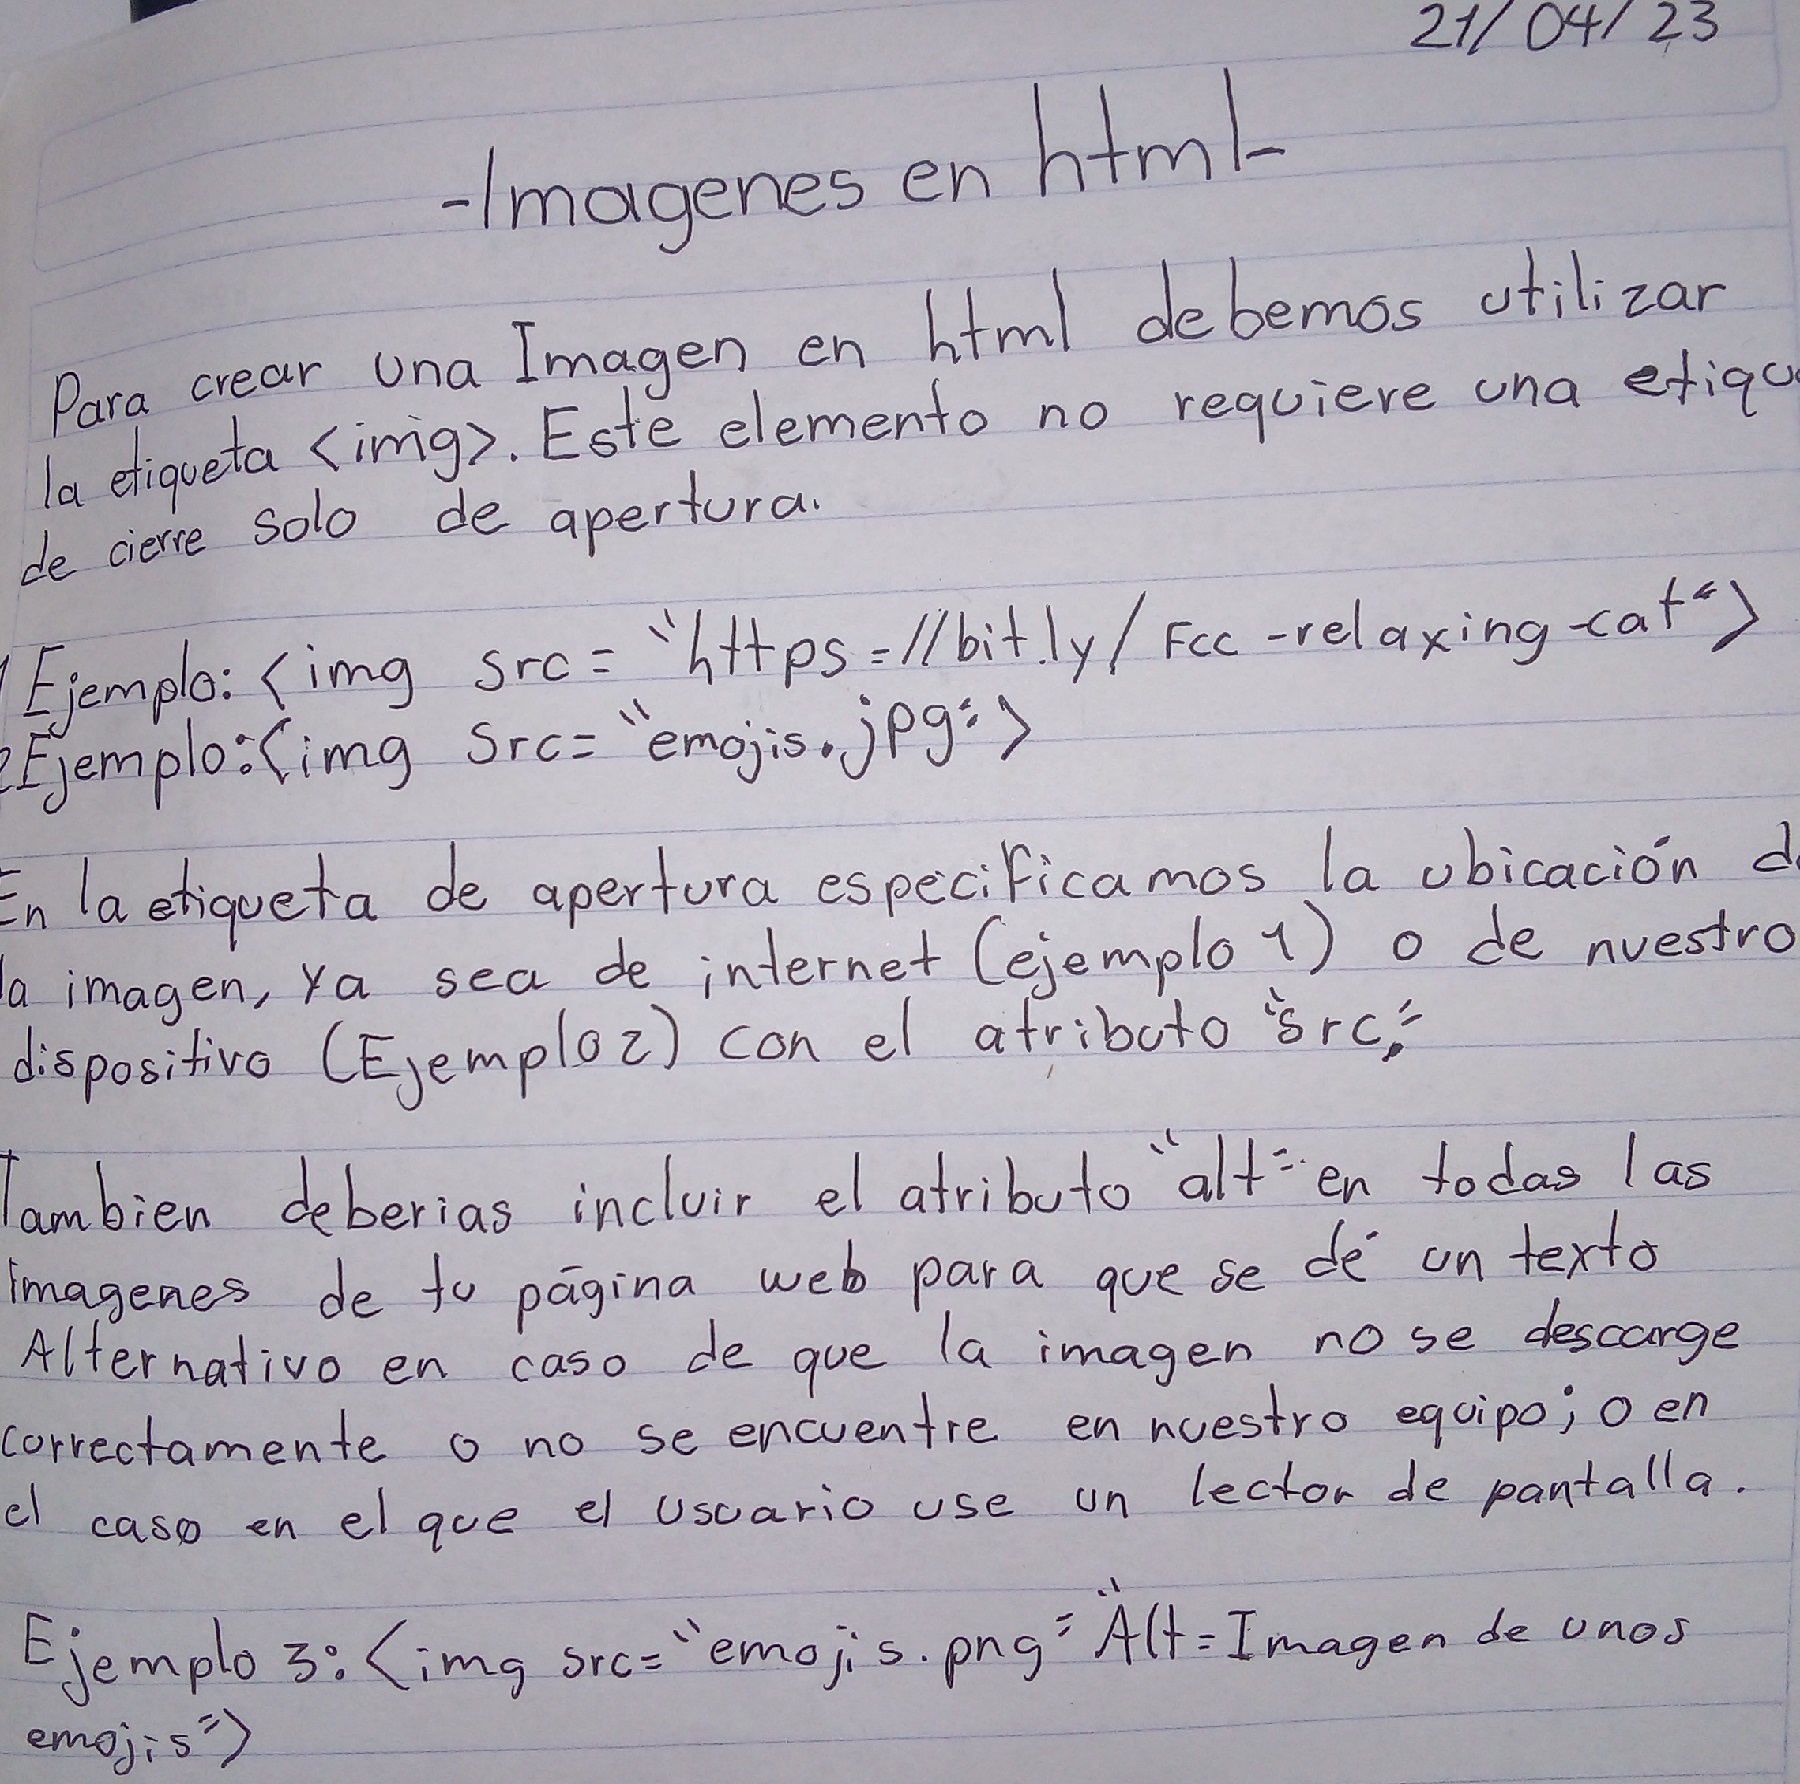 21/04/23
-Imagenes en html-
Para crear una Imagen en html debemos utilizar
la etiqueta <img>. Este elemento no requiere una etiqu
de cierre solo de apertura.
1 Ejemplo: <img src = "https=//bit.ly/Fcc-relaxing-cat">
2 Ejemplo: <img Src= "emojis.jpg">
En la etiqueta de apertura especificamos la ubicación d
la imagen, ya sea de internet (ejemplo 1) o de nuestro
dispositivo (Ejemplo 2) con el atributo "src".
Tambien deberias incluir el atributo "alt" en todas las
imagenes de tu página web para que se dé un texto
Alternativo en caso de que la imagen no se descarge
correctamente o no se encuentre en nuestro equipo; o en
el caso en el que el usuario use un lector de pantalla.
Ejemplo 3: <img src= "emojis.png" "Alt=Imagen de unos
emojis">